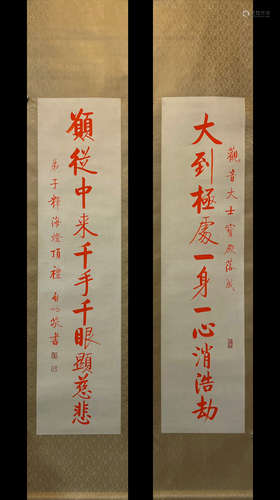 觀音大士寶殿落成
大到極處一身一心消浩劫
願從中来千手千眼顯慈悲
弟子釋海燈頂禮
敬書